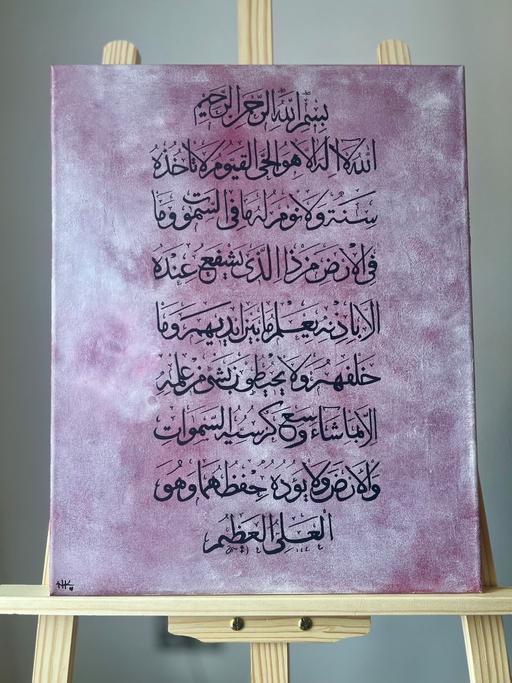 بسم الله الرحمن الرحيم
الله لا اله الا هو الحي القيوم لا تأخذه
سنة ولا نوم له ما في السموت وما
في الارض من ذا الذي يشفع عنده
الا باذنه يعلم ما بين ايديهم وما
خلفهم ولا يحيطون بشئ من علمه
الا بما شاء وسع كرسيه السموات
والارض ولا يؤده حفظهما وهو
العلي العظيم